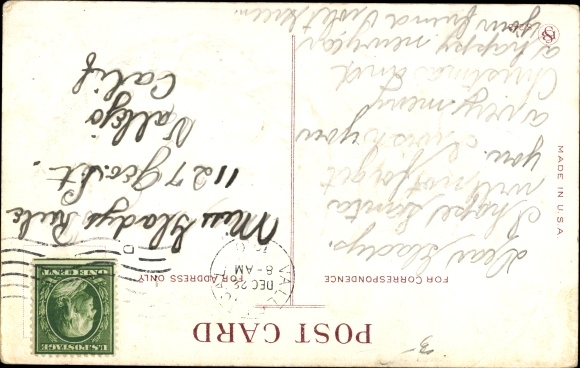 POST CARD
FOR CORRESPONDENCE
FOR ADDRESS ONLY
Dear Gladys.
I hope Santa
will not forget
you. I wish you
a very merry
Christmas and
a happy new year
your friend Violet
U.S. POSTAGE
ONE CENT
DEC
8-AM
Miss Gladys Rule
1127 Geo. St.
Vallejo
Calif
MADE IN U.S.A.
3-